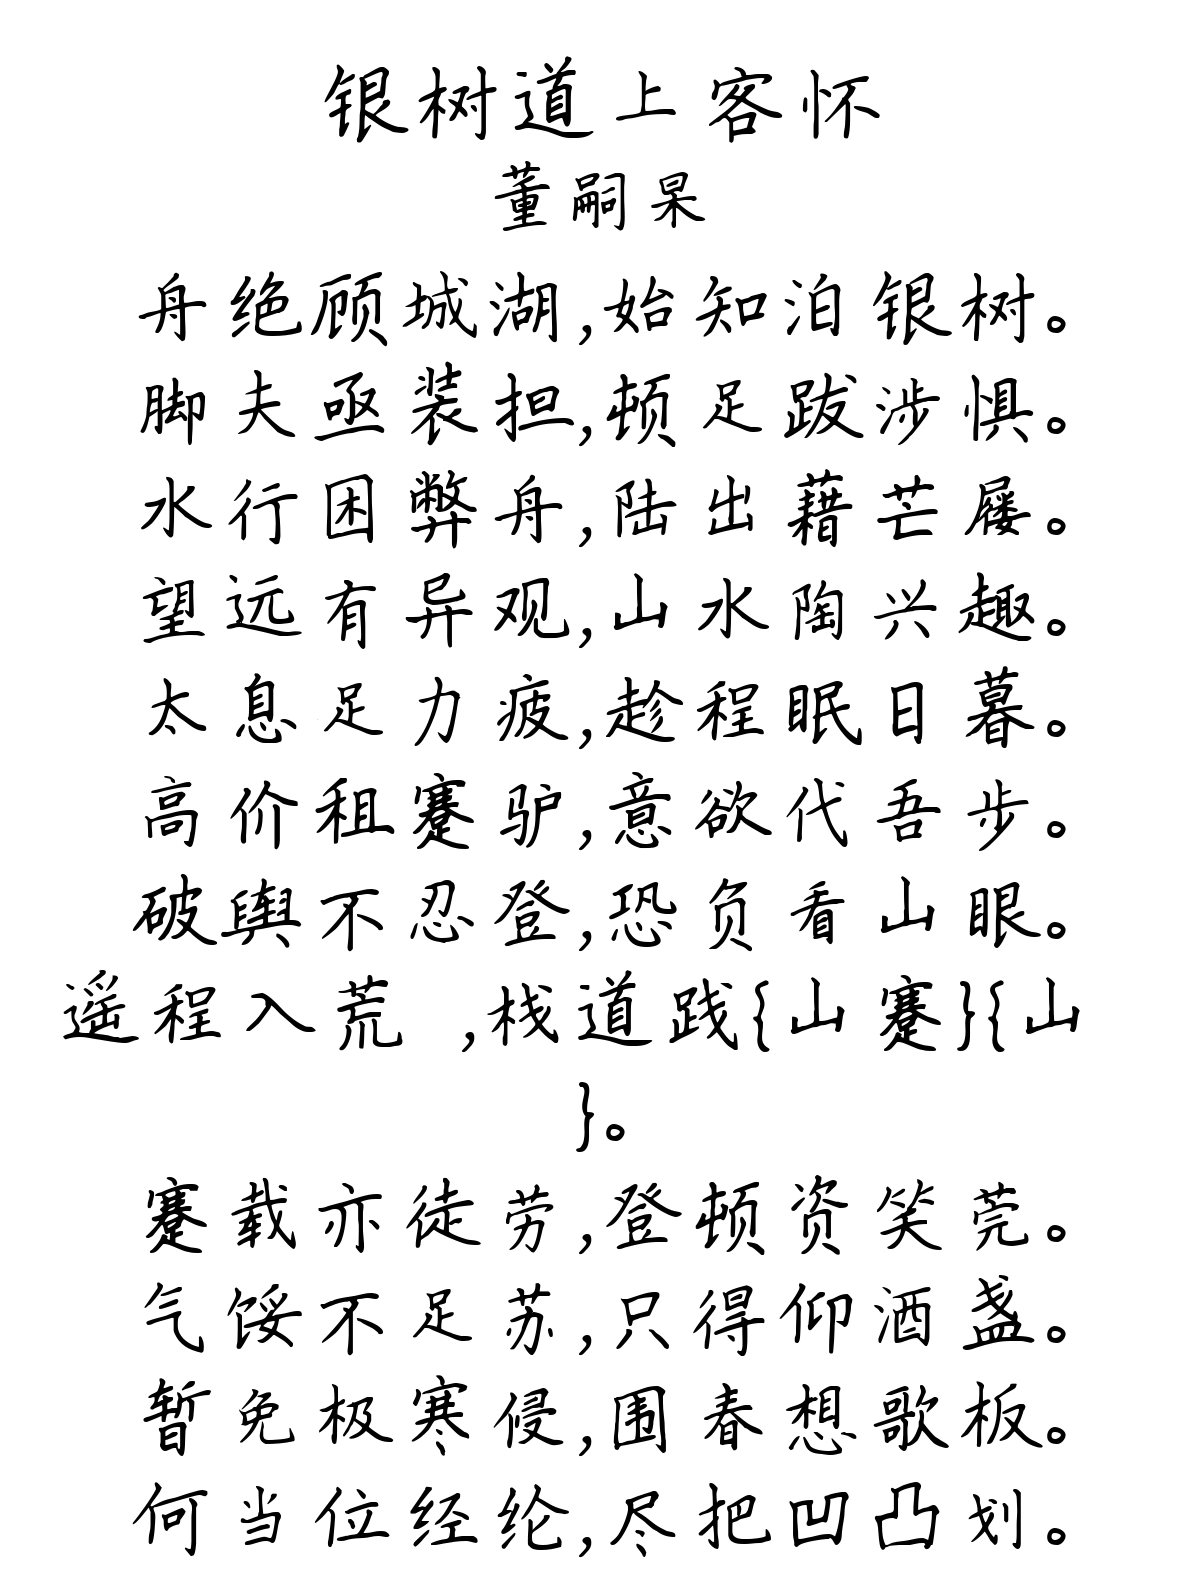 银树道上客怀
董嗣杲
舟绝顾城湖,始知泊银树。
脚夫亟装担,顿足跋涉惧。
水行困弊舟,陆出藉芒屦。
望远有异观,山水陶兴趣。
太息足力疲,趁程眠日暮。
高价租蹇驴,意欲代吾步。
破舆不忍登,恐负看山眼。
遥程入荒 ,栈道践{山蹇}{山
}。
蹇载亦徒劳,登顿资笑莞。
气馁不足苏,只得仰酒盏。
暂免极寒侵,围春想歌板。
何当位经纶,尽把凹凸划。